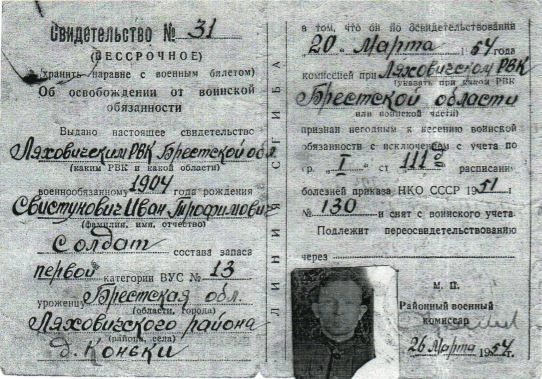 Свидетельство № 31
(БЕССРОЧНОЕ)
(хранить наравне с военным билетом)
Об освобождении от воинской
обязанности
Выдано настоящее свидетельство
Ляховичским РВК Брестской обл
(каким РВК и какой области)
военнообязанному 1904 года рождения
Свистунович Иван Трофимович
(фамилия, имя, отчество)
Солдат состава запаса
первой категории ВУС № 13
уроженцу Брестская обл
(области, города)
Ляховичского района
(района, села)
д. Коньки
ЛИНИЯ СГИБА
в том, что он по освидетельствовании
20 " Марта 1954 года
комиссией при Ляховичском РВК
(указать при каком РВК
Брестской области
или воинской части)
признан негодным к несению воинской
обязанности с исключением с учета по
гр. " I " ст 111 расписания
болезней приказа НКО СССР 1951 г
№ 130 и снят с воинского учета
Подлежит переосвидетельствованию
через
М. П.
Районный военный
комиссар
26 Марта 1954г.